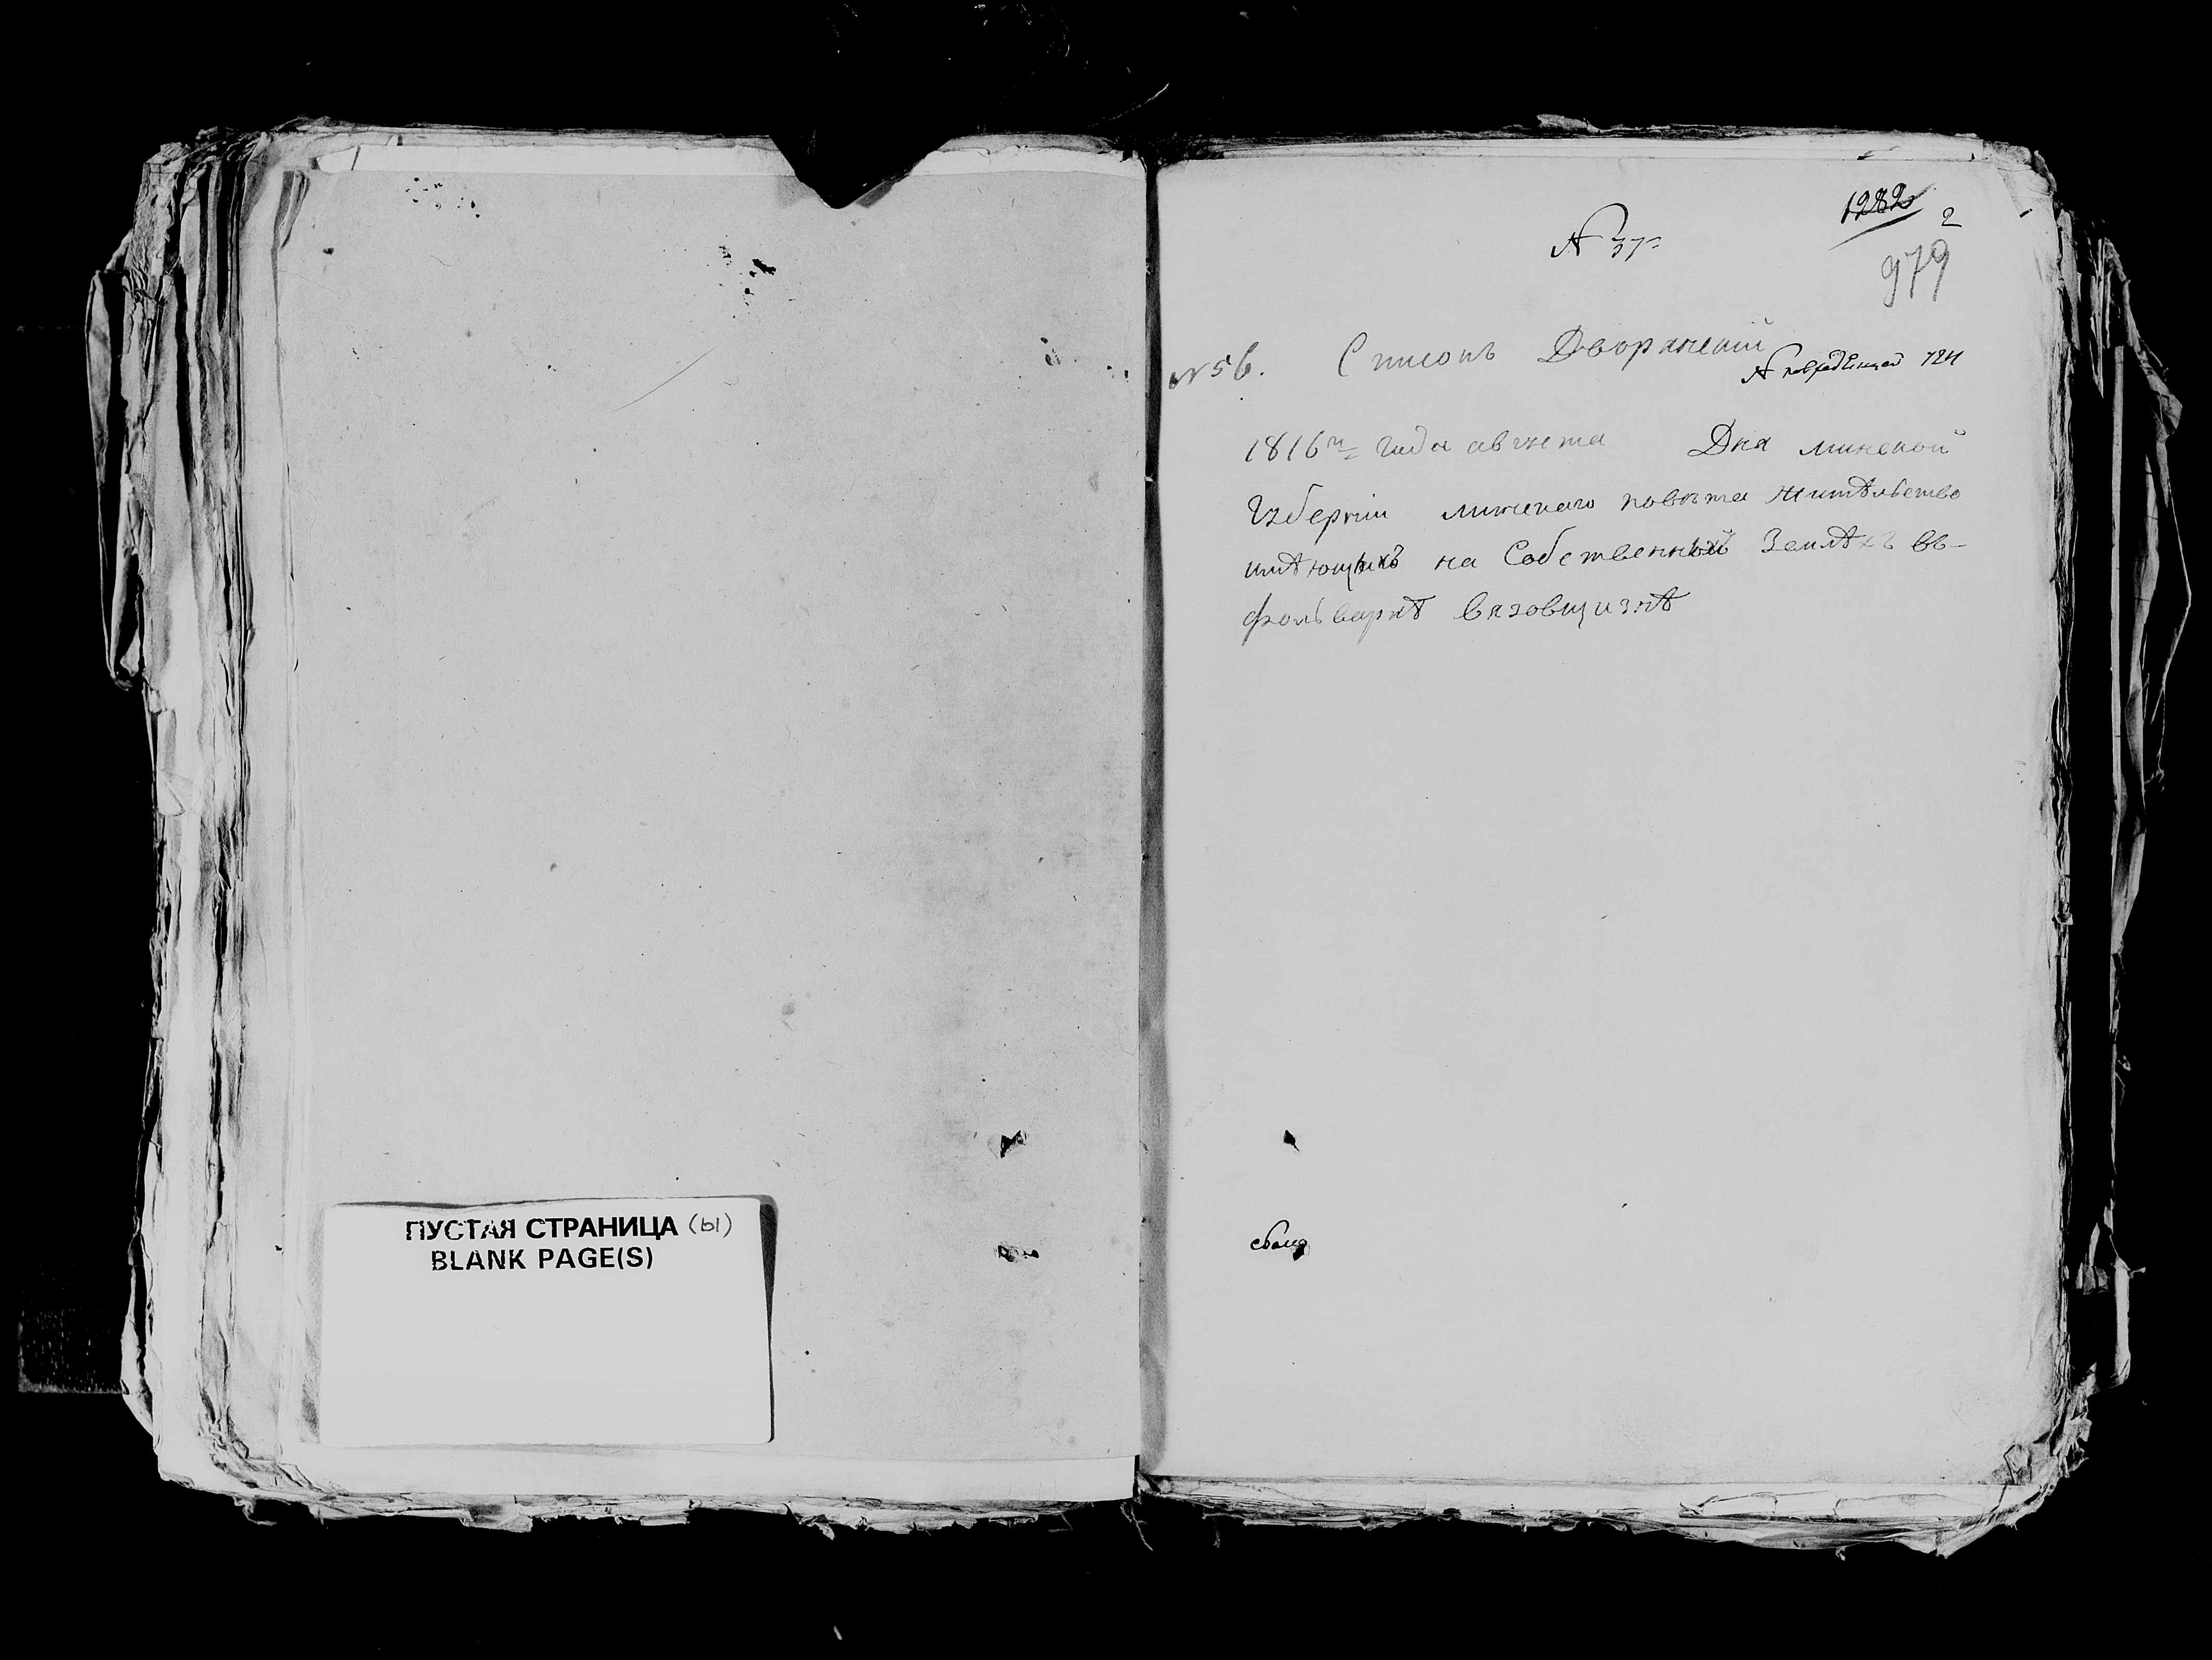 ПУСТАЯ СТРАНИЦА (ы)
BLANK PAGE(S)
1282
2
№ 37
979
№ 56. Списокъ Дворянский
№ 124
1816го года августа Дня минской
Губерніи минскаго повѣта жительство
имѣющихъ на Собственной Землѣхъ въ
фольваркѣ Вязовщизнѣ